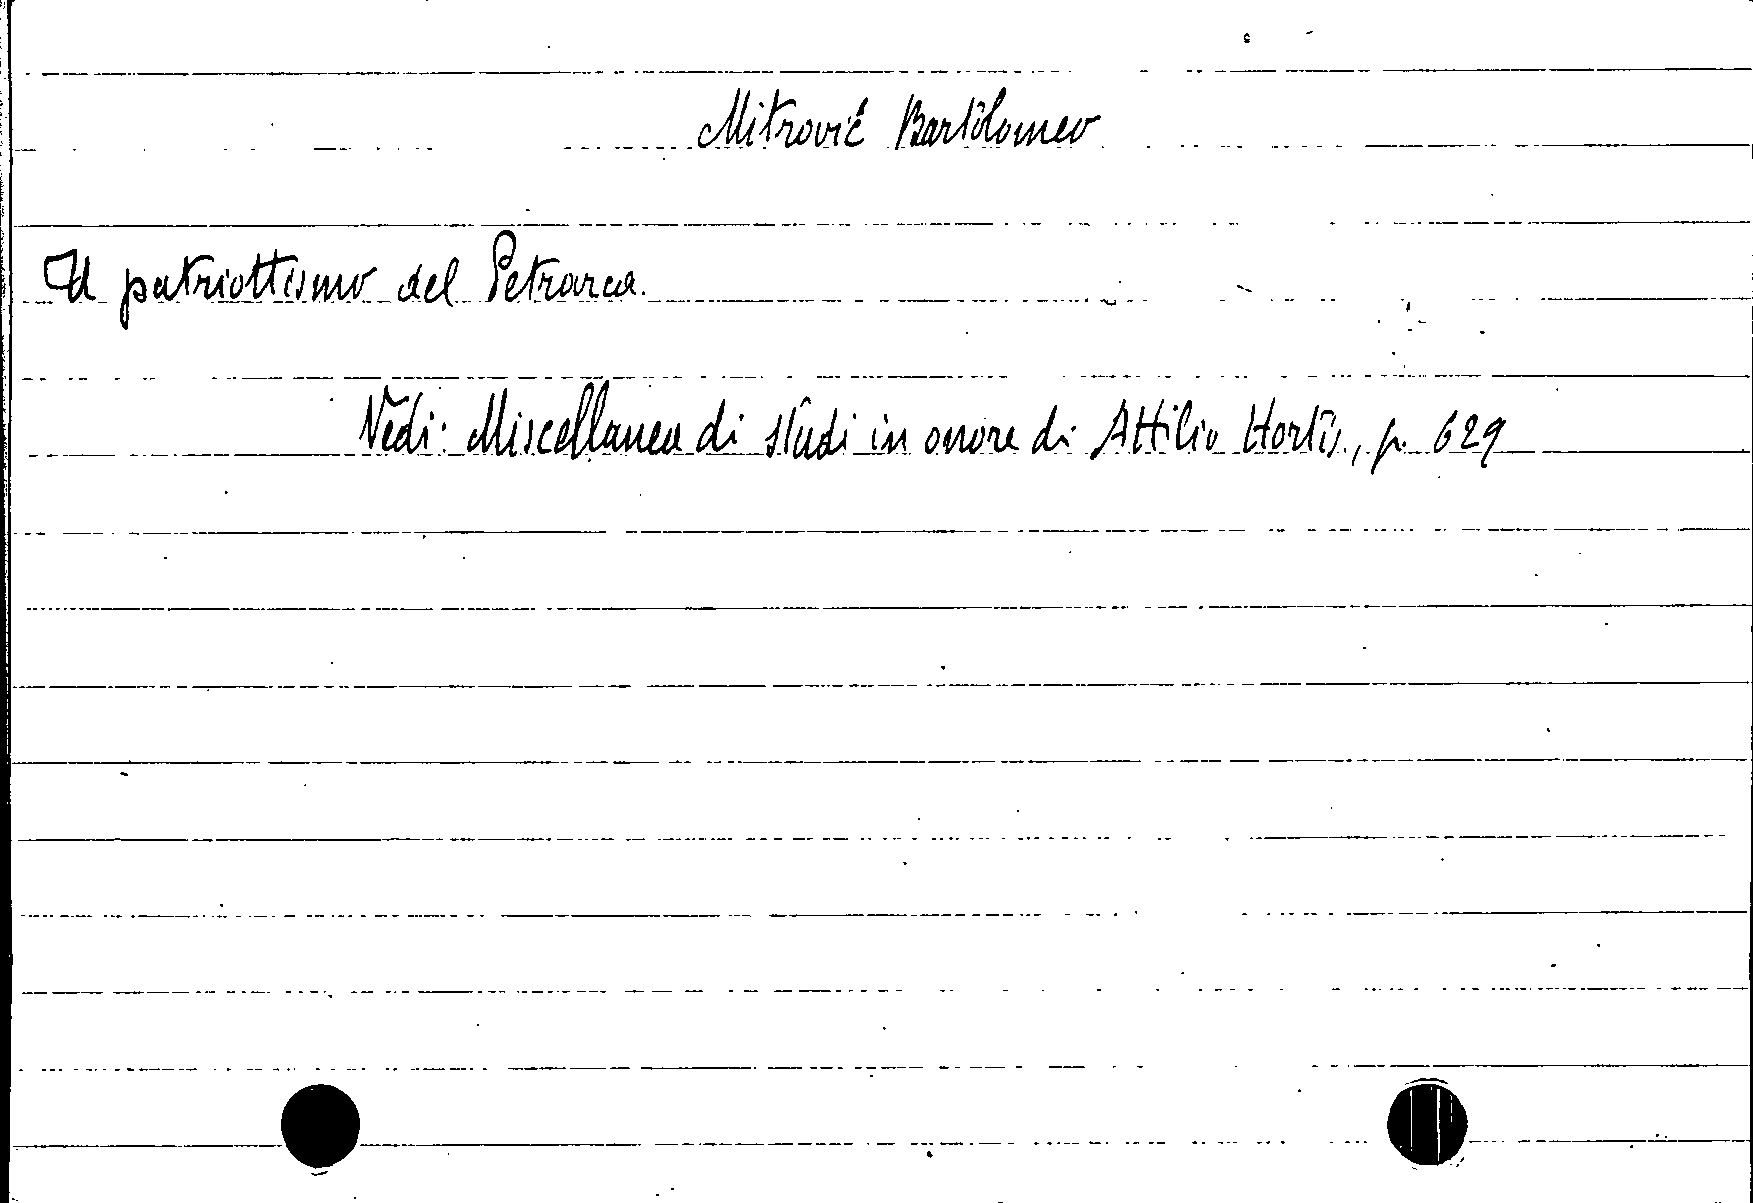 Mitrović Bartolomeo
Il patriottismo del Petrarca.
Vedi: Miscellanea di studi in onore di Attilio Hortis, p. 629